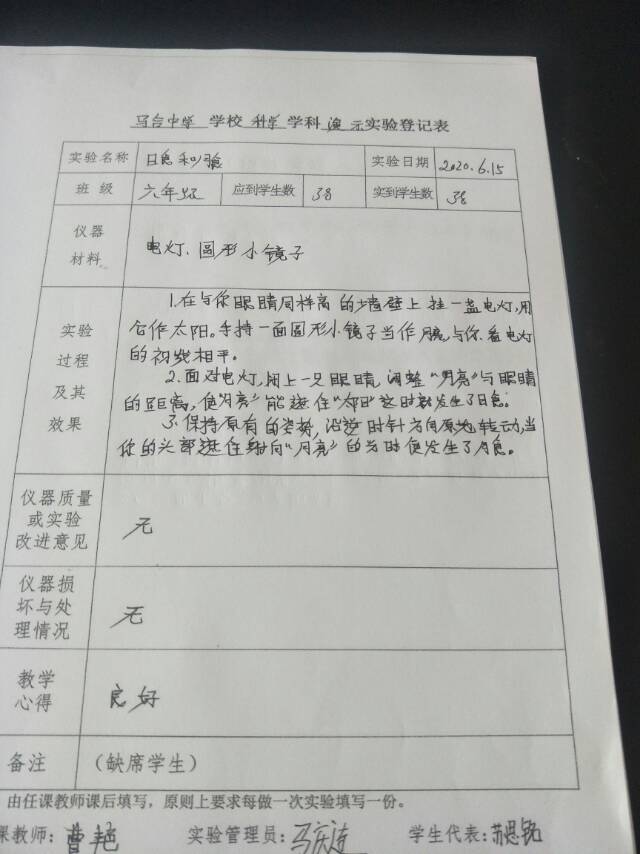 马台中学 学校 科学 学科 演示实验登记表
实验名称 日食和月食 实验日期 2020.6.15
班 级 六年级 应到学生数 38 实到学生数 38
仪器材料 电灯、圆形小镜子
实验过程及其效果
1.在与你眼睛同样高的墙壁上挂一盏电灯,用
它作太阳。手持一面圆形小镜子当作月亮,与你看电灯
的视线相平。
2.面对电灯,闭上一只眼睛,调整"月亮"与眼睛
的距离,使"月亮"能遮住"太阳"这时就发生了日食。
3.保持原有的姿势,沿逆时针方向原地转动,当
你的头部遮住射向"月亮"的光时便发生了月食。
仪器质量或实验改进意见 无
仪器损坏与处理情况 无
教学心得 良好
备注 (缺席学生)
由任课教师课后填写，原则上要求每做一次实验填写一份。
课教师: 曹艳 实验管理员: 马庆 学生代表: 苏思铭